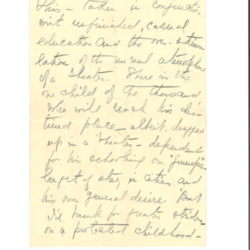 This - taken in conjunction
with unfinished, casual
education and the own stimu
lation of the unreal atmosphere
of a theatre. There is the
one child of the thousand
who will reach his des
tined place - albeit, dragged
up in a theatre - dependent
for his schooling on
length of stay in cities, and
his own general desire. But
I'd rank for first
on a protected childhood -